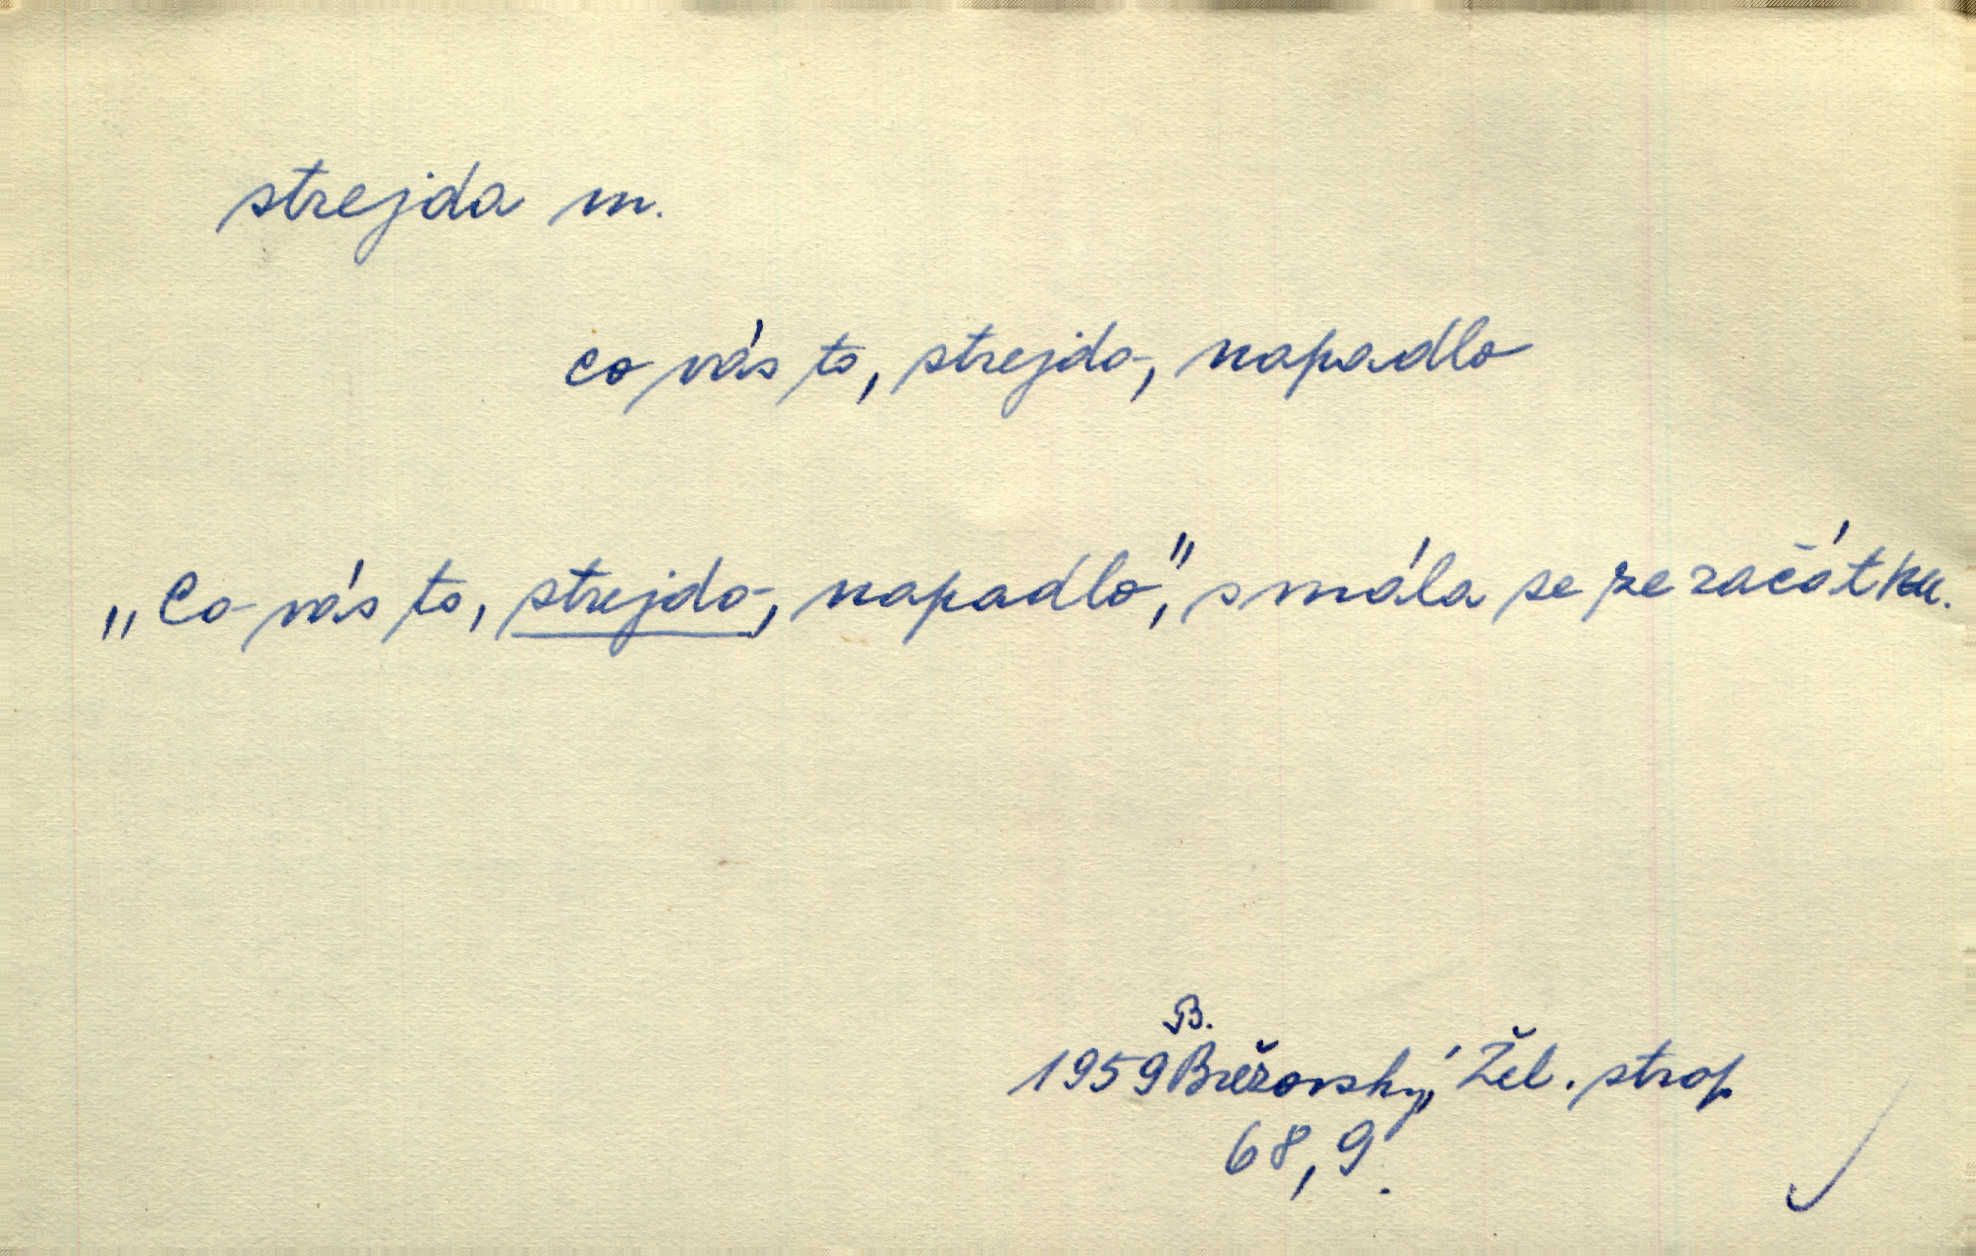 strejda m.
co vás to, strejdo, napadlo
„Co vás to, strejdo, napadlo," smála se ze začátku.
B.
1959 Březovský, Žel. strop
68,9.